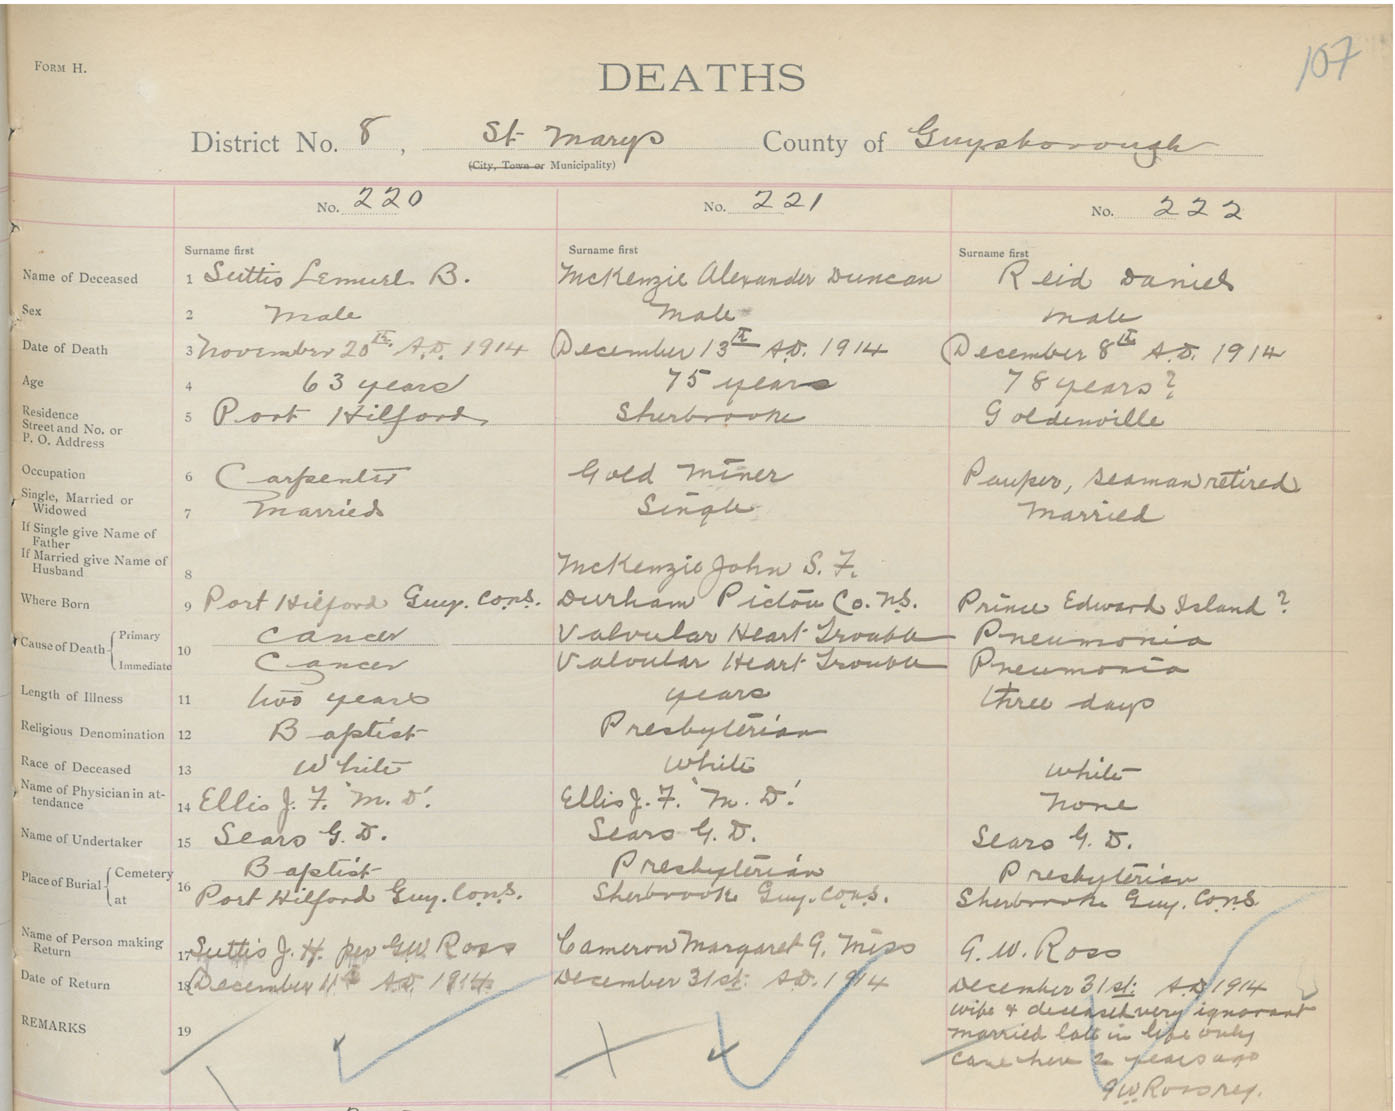 107
FORM H.
DEATHS
District No. 8, St Marys County of Guysborough
(City, Town or Municipality)
No. 220 No. 221 No. 222
Surname first Surname first Surname first
Name of Deceased 1 Suttis Lemuel B. McKenzie Alexander Duncan Reid Daniel
Sex 2 Male Male Male
Date of Death 3 November 20th A.D. 1914 December 13th A.D. 1914 December 8th A.D. 1914
Age 4 63 years 75 years 78 years?
Residence Street and No. or P. O. Address 5 Port Hilford Sherbrooke Goldenville
Occupation 6 Carpenter Gold Miner Pauper, seaman retired
Single, Married or Widowed 7 Married Single Married
If Single give Name of Father
If Married give Name of Husband 8 McKenzie John S. F.
Where Born 9 Port Hilford Guy. Co. N.S. Durham Pictou Co. N.S. Prince Edward Island ?
Cause of Death Primary 10 Cancer Valvular Heart Trouble Pneumonia
Immediate Cancer Valvular Heart Trouble Pneumonia
Length of Illness 11 two years years three days
Religious Denomination 12 Baptist Presbyterian
Race of Deceased 13 White White White
Name of Physician in attendance 14 Ellis J. F. "M. D". Ellis J. F. "M. D". None
Name of Undertaker 15 Sears G. D. Sears G. D. Sears G. D.
Place of Burial Cemetery 16 Baptist Presbyterian Presbyterian
at Port Hilford Guy. Co. N.S. Sherbrooke Guy. Co. N.S. Sherbrooke Guy. Co. N.S.
Name of Person making Return 17 Suttis J. H. per G.W. Ross Cameron Margaret G. Miss G. W. Ross
Date of Return 18 December 11th A.D. 1914 December 31st: A.D. 1914 December 31st: A.D. 1914
REMARKS 19 wife & deceased very ignorant
married late in life only
came here 2 years ago
G W Ross reg.